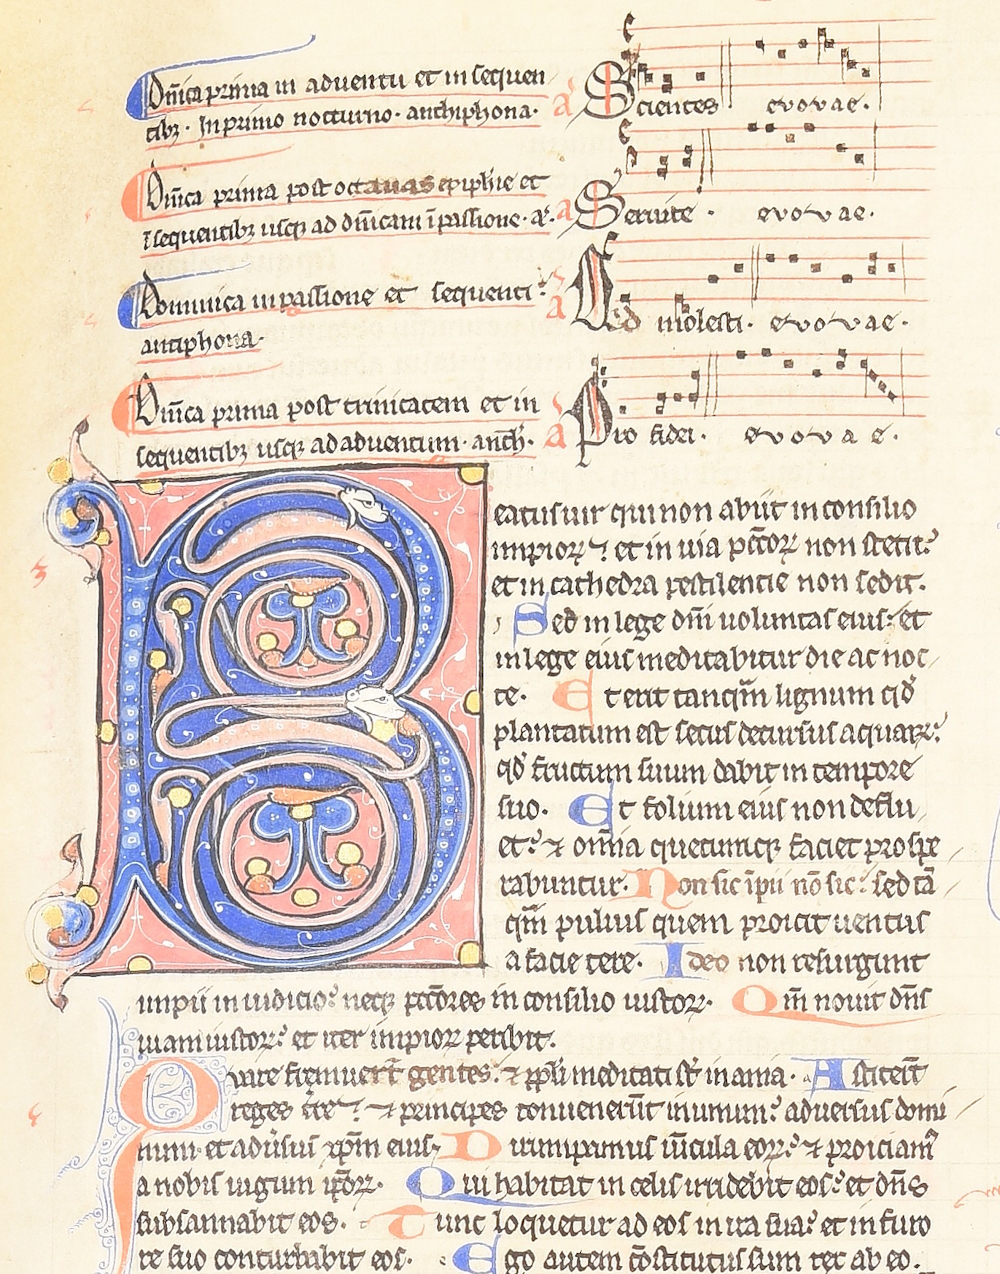 Dñica prima in aduentu et in sequen
tibꝫ. In primo nocturno. antiphona. a Scientes euouae.
Dñica prima post octauas epiphie et
ĩ sequentibꝫ usqꝫ ad dñicam ĩ passione. añ. a Seruite. euouae.
Dominica in passione et sequenti:
antiphona. a Quid molesti. euouae.
Dñica prima post trinitatem et in
sequentibꝫ usqꝫ ad aduentum. anth̃. a Pro fidei. euouae.
Beatus uir qui non abiit in consilio
impioꝝ et in uia pc̃coꝝ non stetit:
et in cathedra pestilencie non sedit.
Sed in lege dñi uoluntas eius: et
in lege eius meditabitur die ac noc
te. Et erit tanqm̃ lignum qđ
plantatum est secus decursus aquaꝝ:
qđ fructum suum dabit in tempore
suo. Et folium eius non deflu
et: ⁊ om̃ia quecumqꝫ faciet prospe
rabuntur. Non sic ipii nõ sic: sed tã
qm̃ puluis quem proicit uentus
a facie tere. Ideo non resurgunt
impii in iudicio: neqꝫ pcc̃ores in consilio iustoꝝ. Qm̃ nouit dñs
uiam iustoꝝ: et iter impioꝝ peribit.
Quare fremuer̃t gentes: ⁊ ppl̃i meditati st̃ inania. Astiter̃t
reges tr̃e: ⁊ principes conuenerũt in unum: aduersus domi
num et adũsus xp̃m eius. Dirumpamus uĩcula eoꝝ: ⁊ proiciam᷒
a nobis iugum ip̃oꝝ. Qui habitat in celis irridebit eos: et dñs
subsannabit eos. Tunc loquetur ad eos in ira sua: et in furo
re suo conturbabit eos. Ego autem cõstitutus sum rex ab eo.